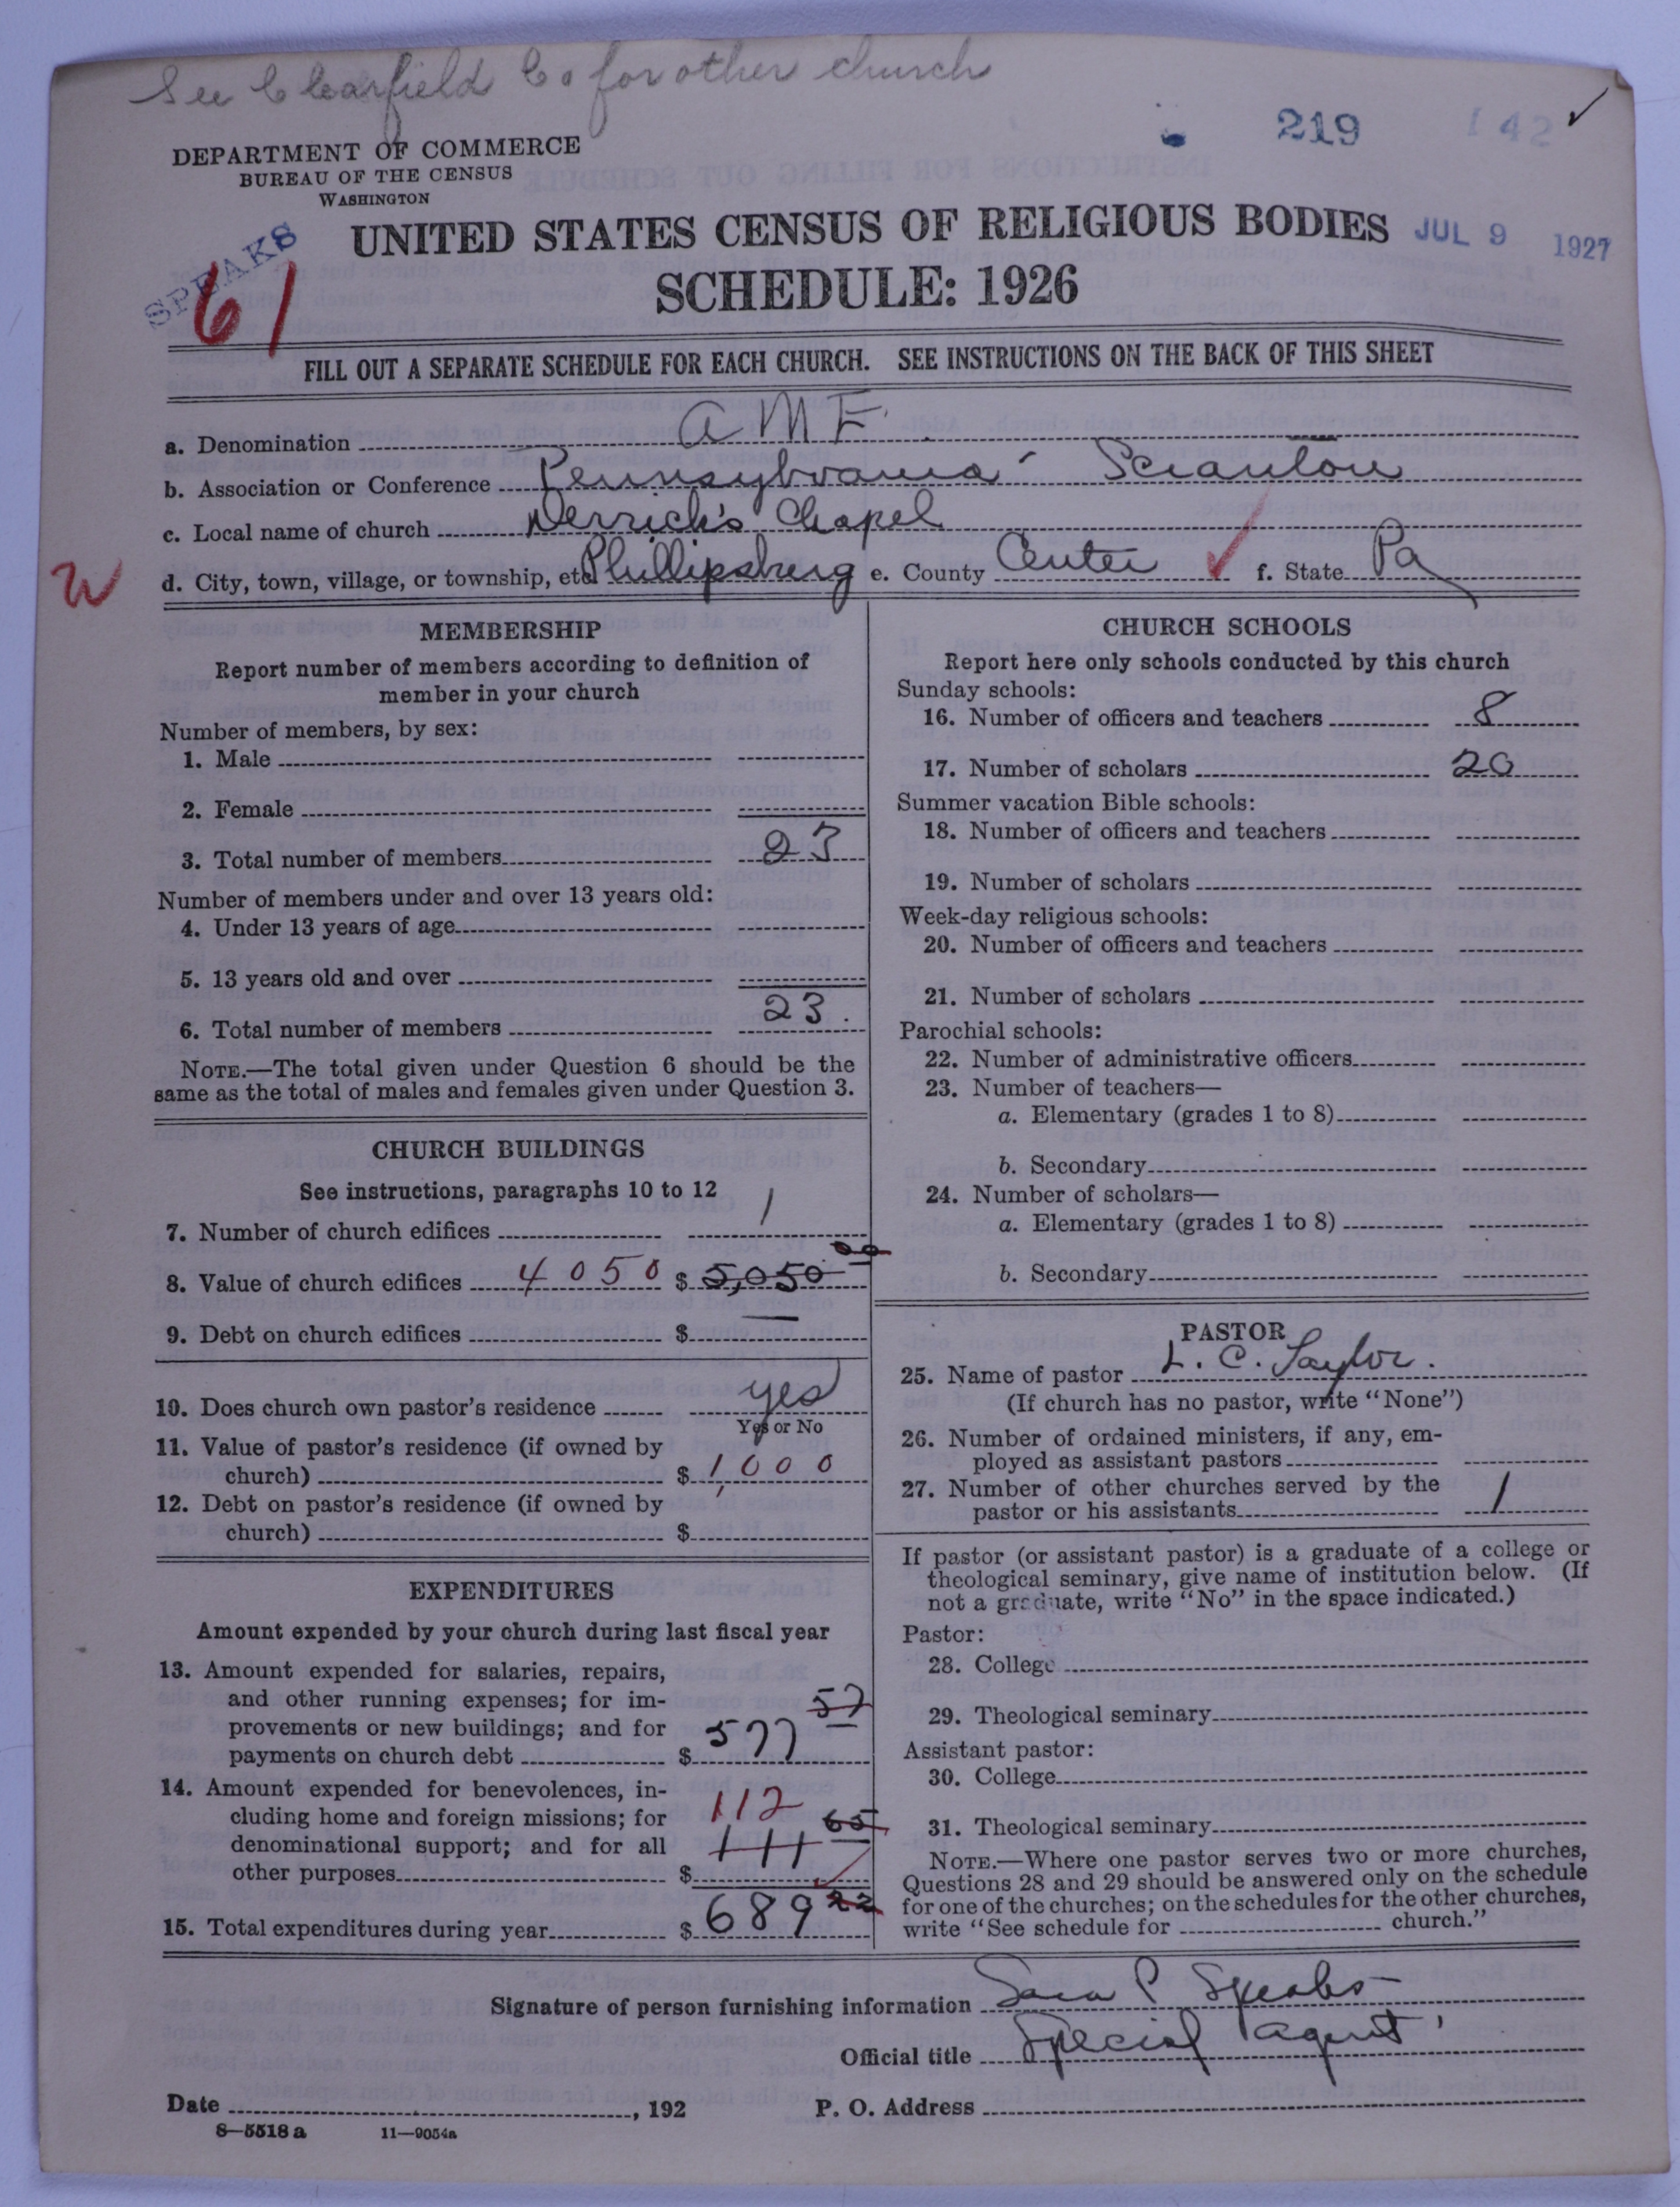 See Clearfield Co for other church
219 142 ✓
DEPARTMENT OF COMMERCE
BUREAU OF THE CENSUS
WASHINGTON
UNITED STATES CENSUS OF RELIGIOUS BODIES JUL 9 1927
SPEAKS
61
SCHEDULE: 1926
FILL OUT A SEPARATE SCHEDULE FOR EACH CHURCH. SEE INSTRUCTIONS ON THE BACK OF THIS SHEET
a. Denomination A M E
b. Association or Conference Pennsylvania - Scranton
c. Local name of church Derrick's Chapel
d. City, town, village, or township, etc. Phillipsburg e. County Center ✓ f. State Pa
MEMBERSHIP
Report number of members according to definition of
member in your church
Number of members, by sex:
1. Male
2. Female
3. Total number of members 23
Number of members under and over 13 years old:
4. Under 13 years of age
5. 13 years old and over
6. Total number of members 23.
NOTE.—The total given under Question 6 should be the
same as the total of males and females given under Question 3.
CHURCH BUILDINGS
See instructions, paragraphs 10 to 12
7. Number of church edifices 1
8. Value of church edifices 4050 $ 5,050 00
9. Debt on church edifices $
10. Does church own pastor's residence yes
Yes or No
11. Value of pastor's residence (if owned by
church) $ 1,000
12. Debt on pastor's residence (if owned by
church) $
EXPENDITURES
Amount expended by your church during last fiscal year
13. Amount expended for salaries, repairs,
and other running expenses; for im-
provements or new buildings; and for
payments on church debt $ 577 57
14. Amount expended for benevolences, in-
cluding home and foreign missions; for
denominational support; and for all
other purposes $ 112 111 65
15. Total expenditures during year $ 689 22
CHURCH SCHOOLS
Report here only schools conducted by this church
Sunday schools:
16. Number of officers and teachers 8
17. Number of scholars 20
Summer vacation Bible schools:
18. Number of officers and teachers
19. Number of scholars
Week-day religious schools:
20. Number of officers and teachers
21. Number of scholars
Parochial schools:
22. Number of administrative officers
23. Number of teachers—
a. Elementary (grades 1 to 8)
b. Secondary
24. Number of scholars—
a. Elementary (grades 1 to 8)
b. Secondary
PASTOR
25. Name of pastor L. C. Taylor.
(If church has no pastor, write "None")
26. Number of ordained ministers, if any, em-
ployed as assistant pastors
27. Number of other churches served by the
pastor or his assistants 1
If pastor (or assistant pastor) is a graduate of a college or
theological seminary, give name of institution below. (If
not a graduate, write "No" in the space indicated.)
Pastor:
28. College
29. Theological seminary
Assistant pastor:
30. College
31. Theological seminary
NOTE.—Where one pastor serves two or more churches,
Questions 28 and 29 should be answered only on the schedule
for one of the churches; on the schedules for the other churches,
write "See schedule for church."
Signature of person furnishing information Sara P Speaks
Official title Special Agent
Date , 192 P. O. Address
8—5518 a 11—9054a